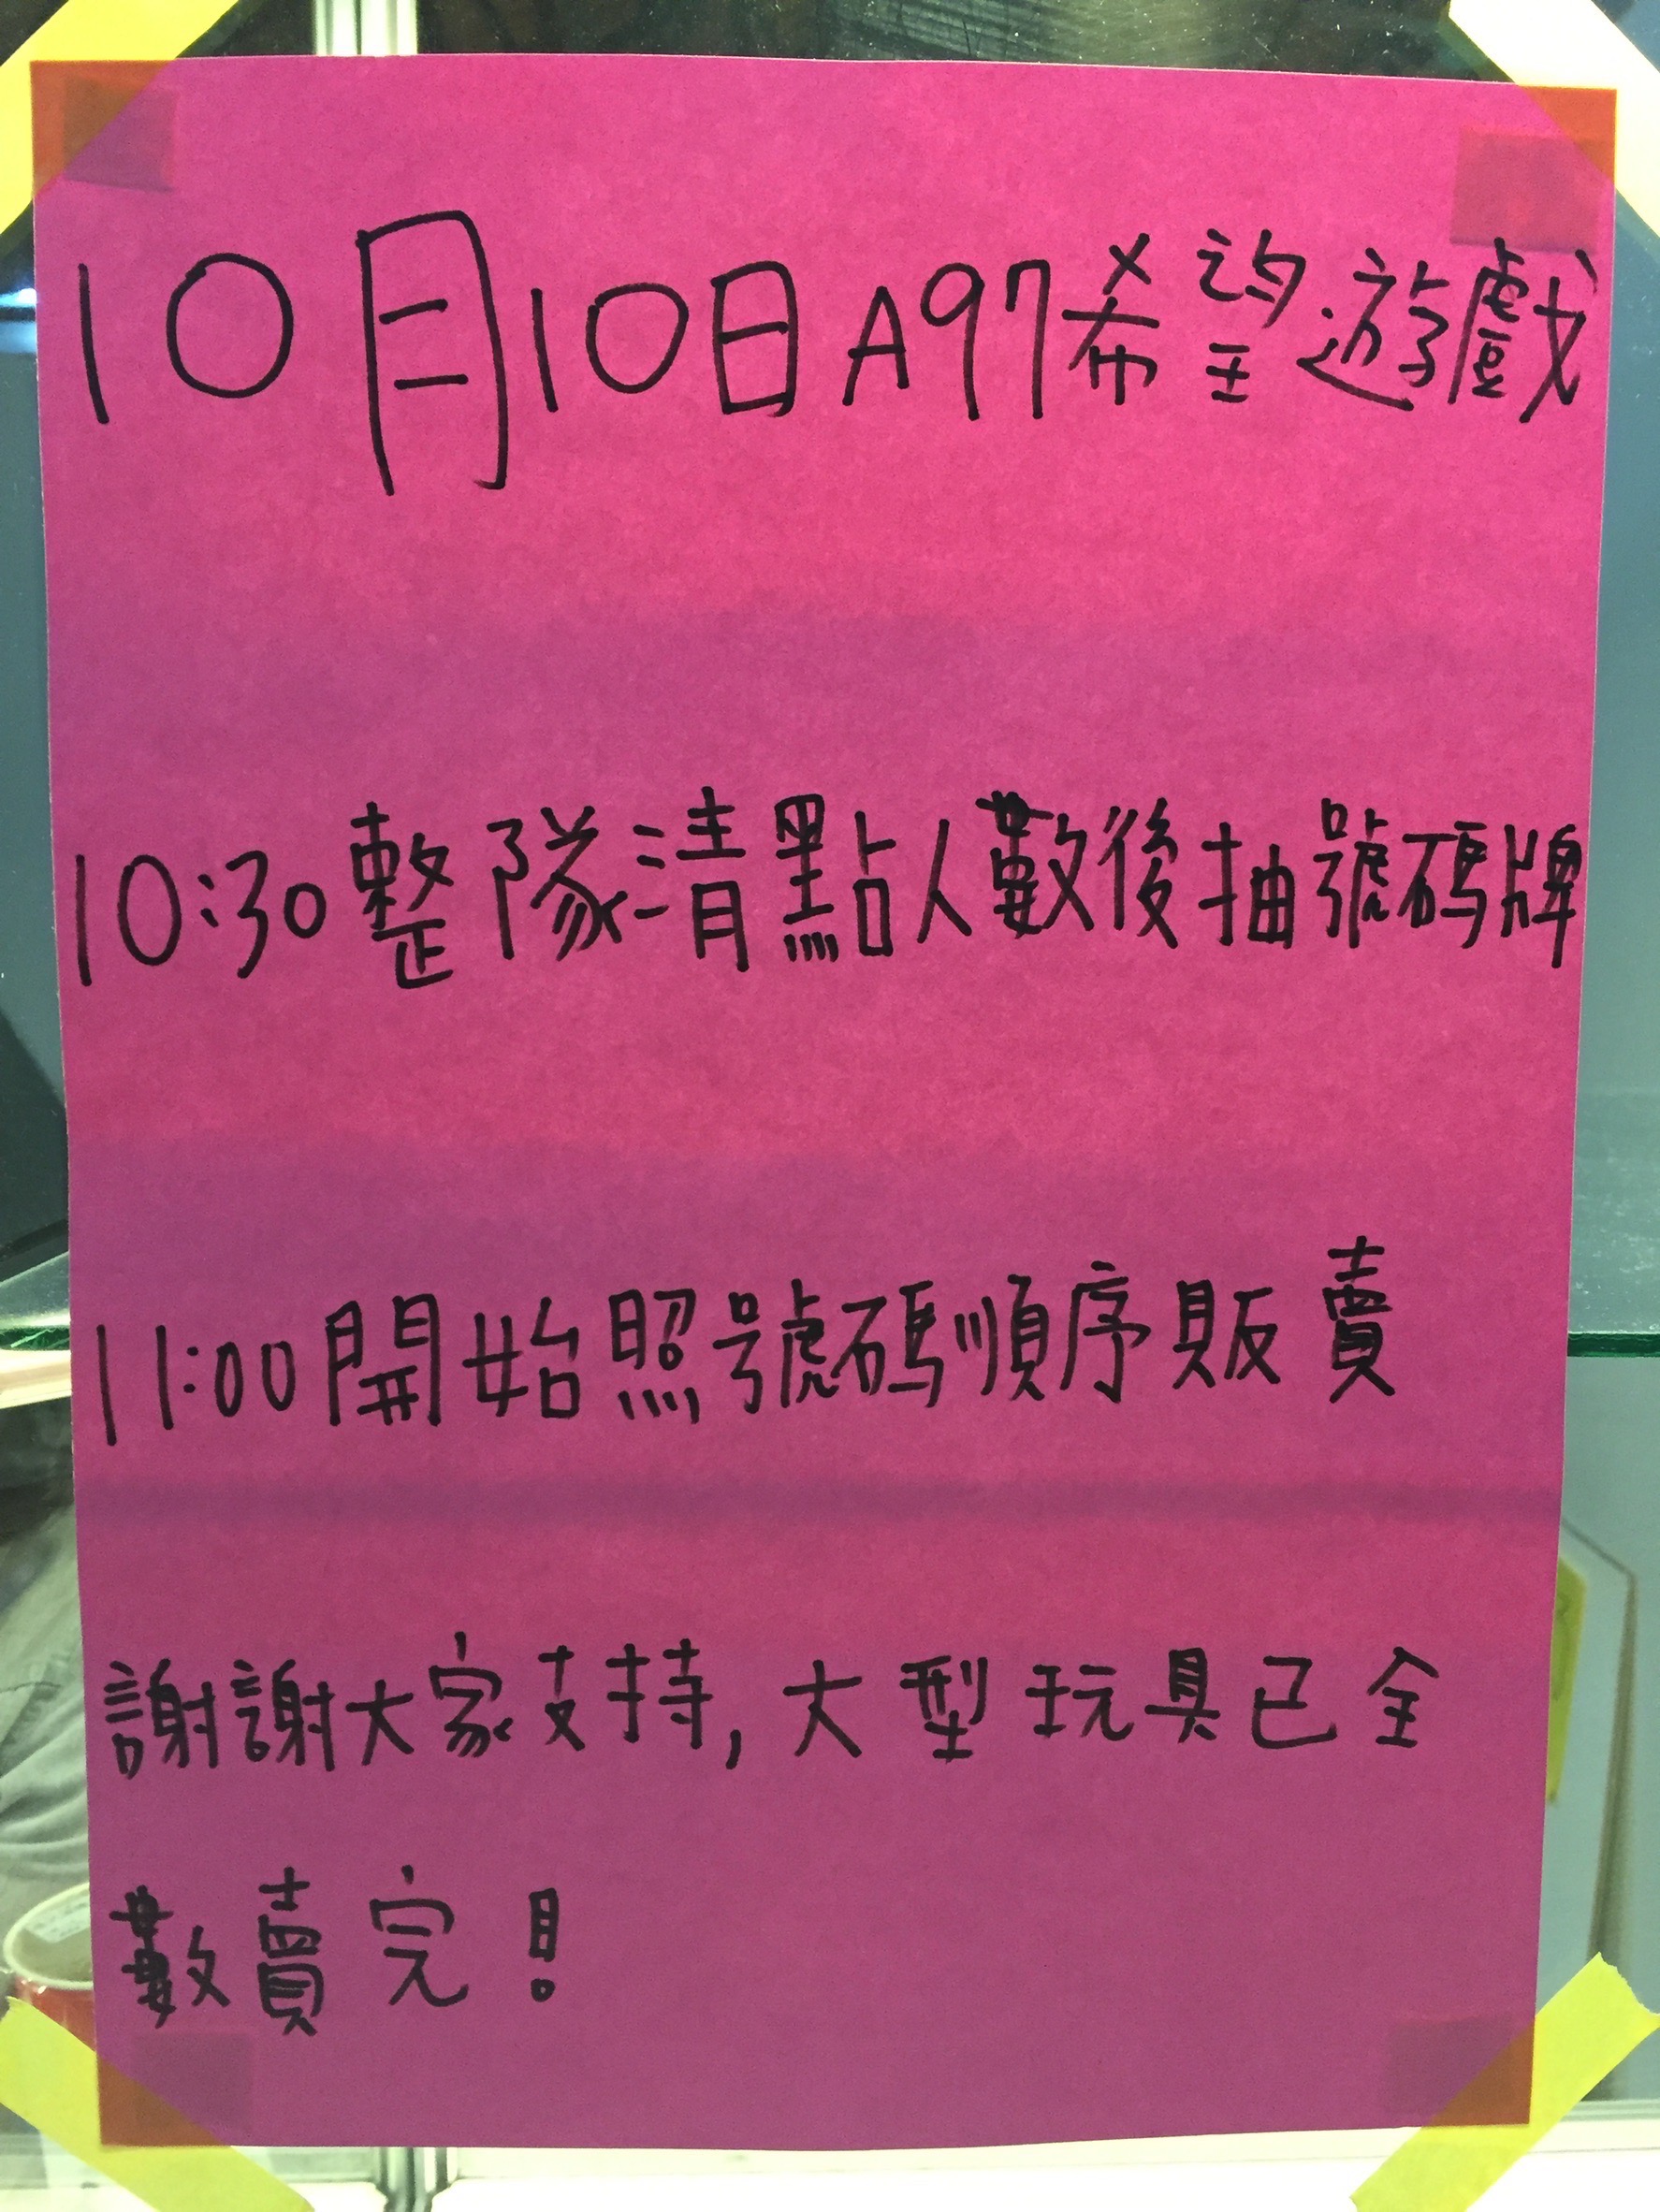 10月10日A97希望遊戲
10:30整隊清點人數後抽號碼牌
11:00開始照號碼順序販賣
謝謝大家支持,大型玩具已全
數賣完!